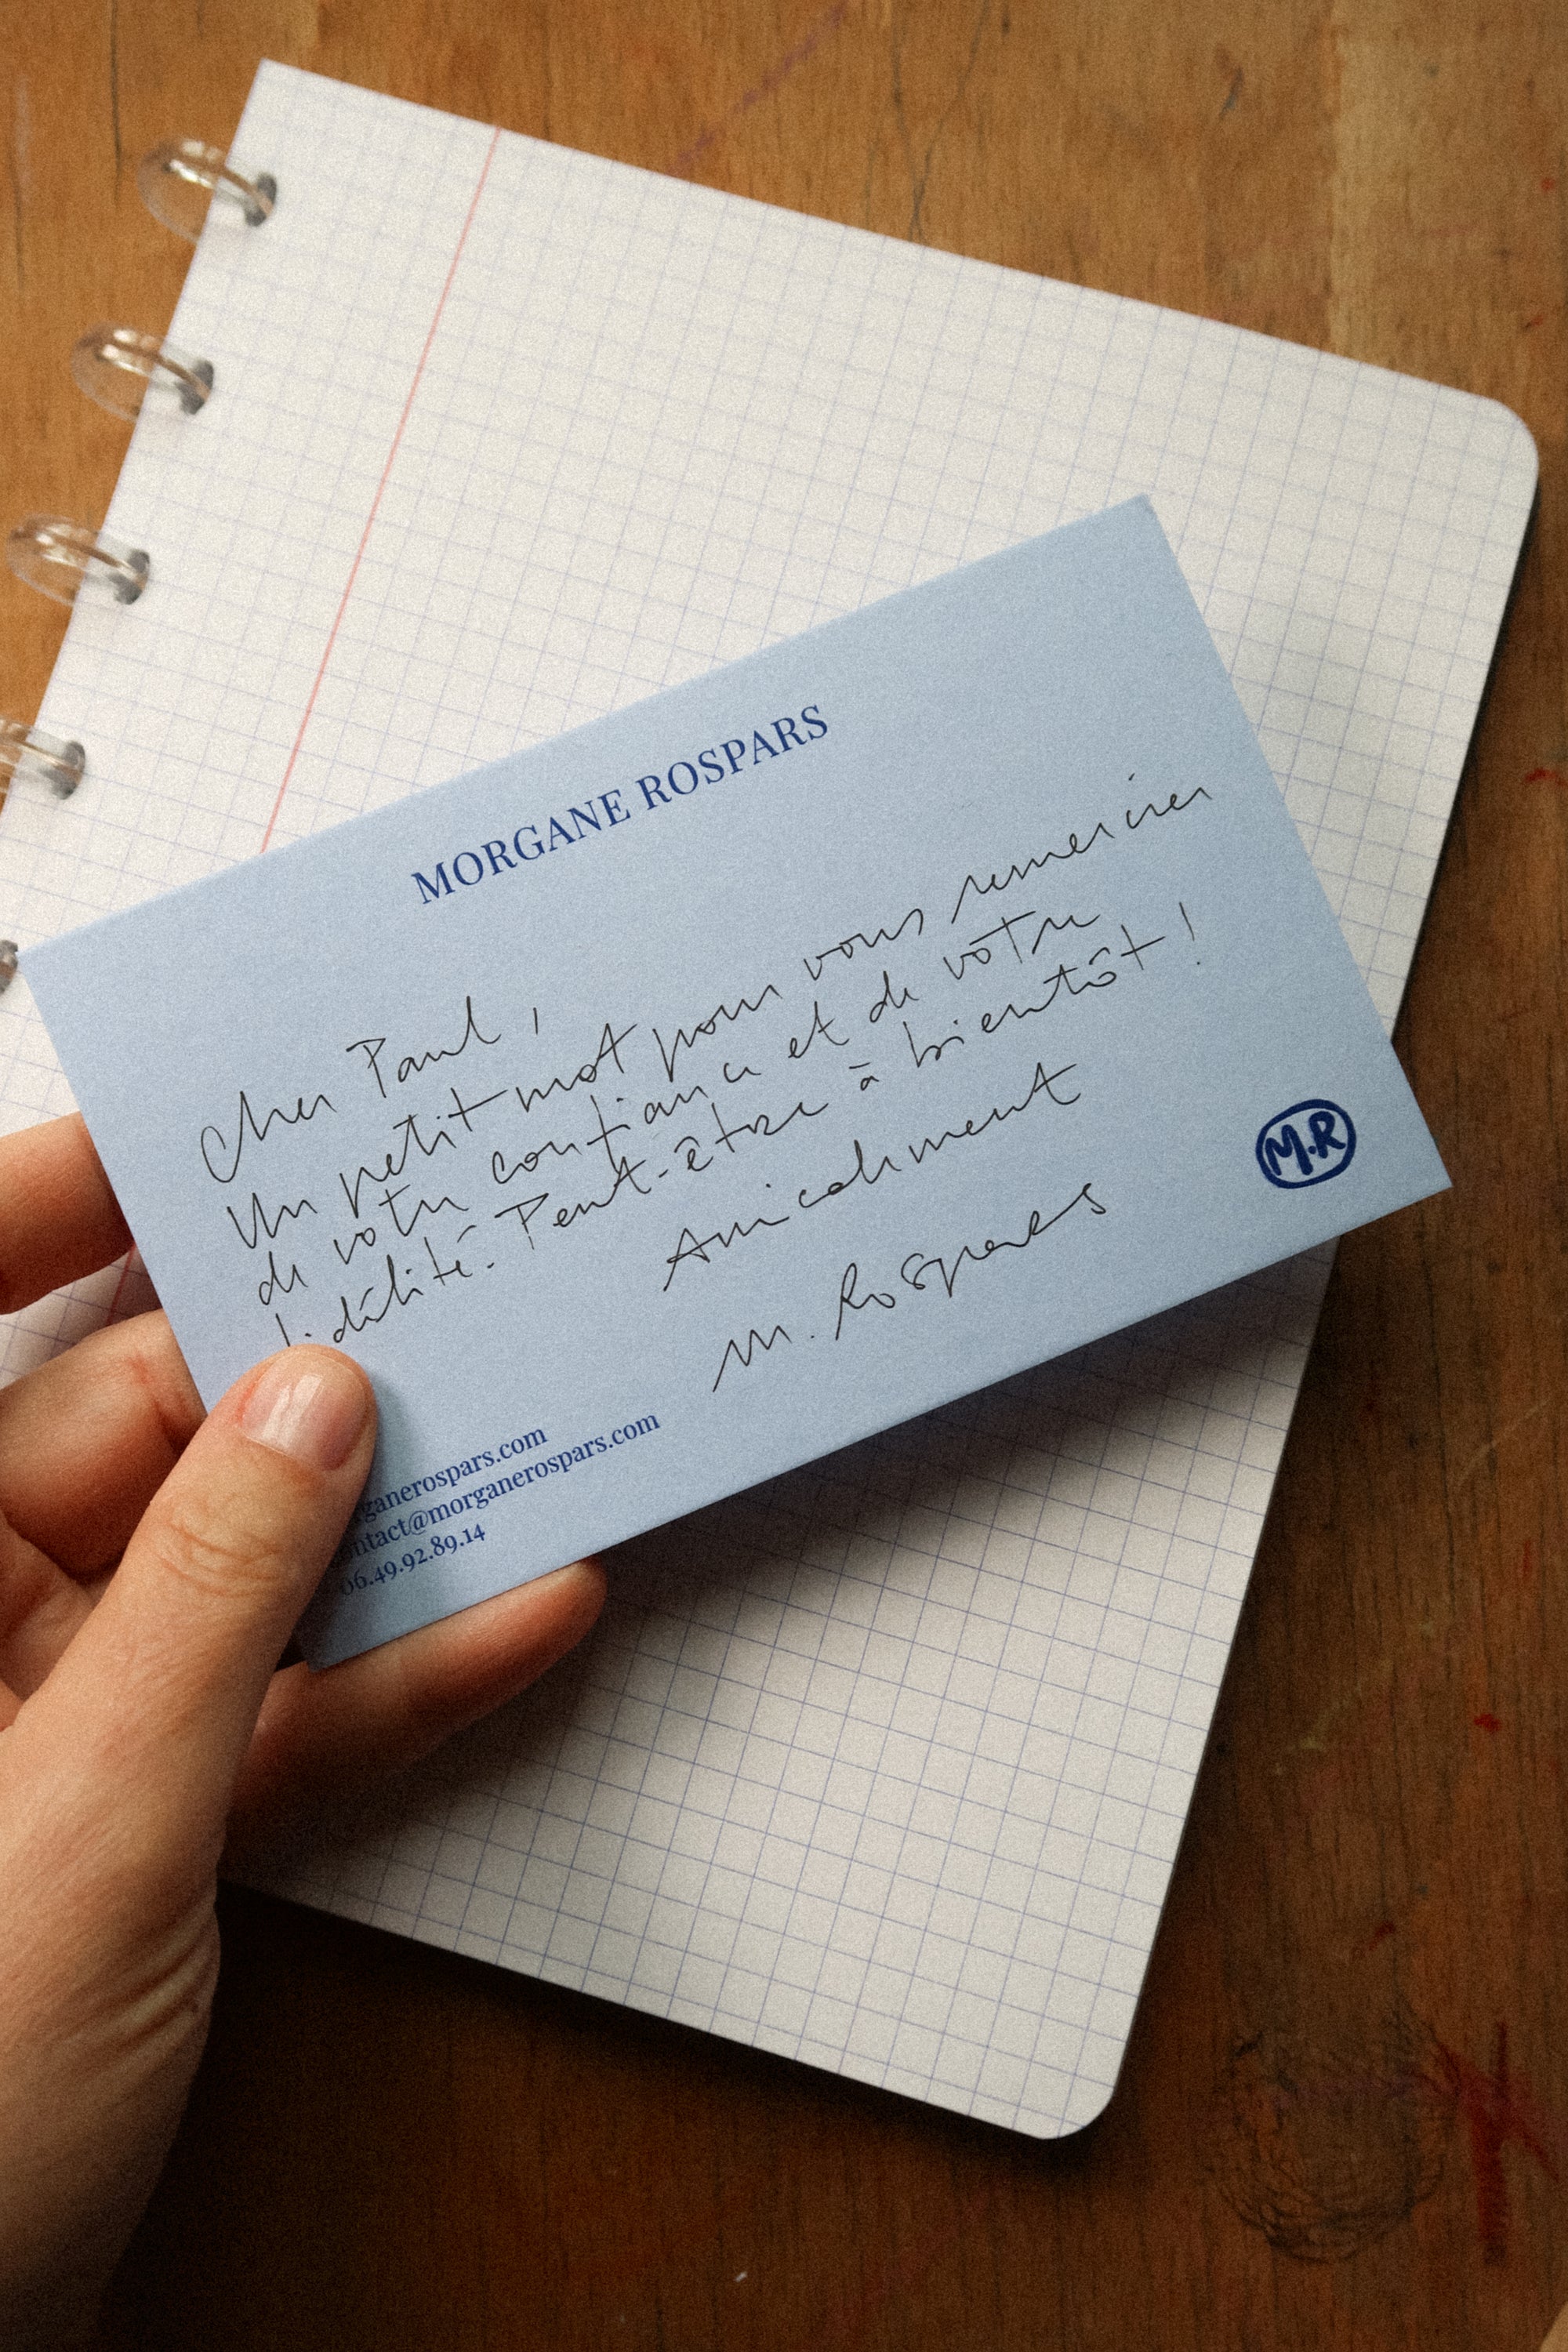 MORGANE ROSPARS
Cher Paul,
Un petit mot pour vous remercier
de votre confiance et de votre
fidélité. Peut-être à bientôt !
Amicalement
M. Rospars
M.R
rganerospars.com
ontact@morganerospars.com
06.49.92.89.14